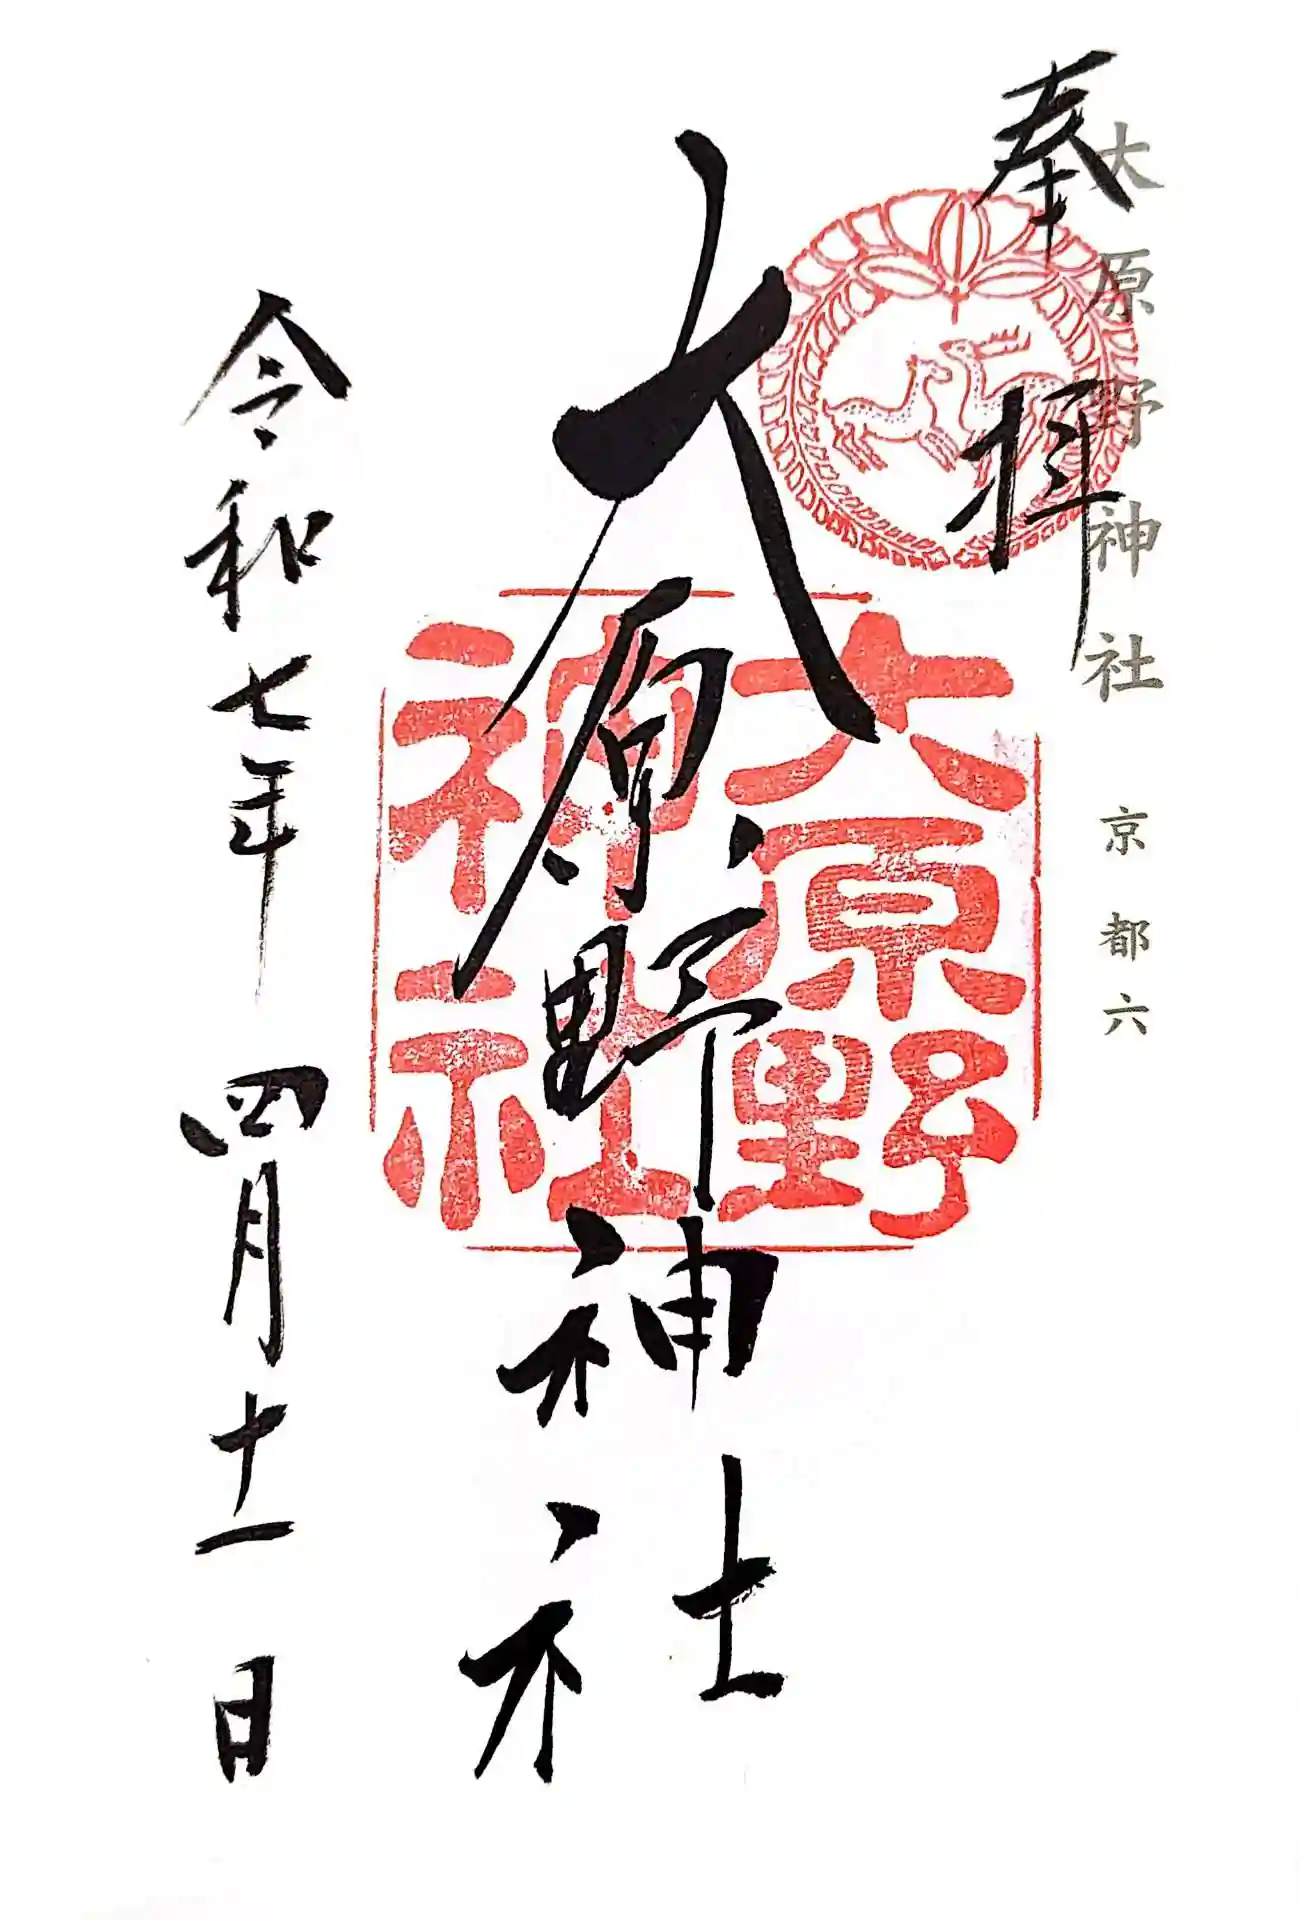 大原野神社 京都六
奉拝
大原野神社
大原野
神社
令和七年 四月十一日